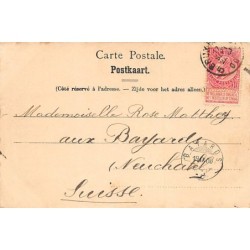 Carte Postale.
Postkaart.
(Côté réservé à l'adresse. — Zijde voor het adres alleen.)
Mademoiselle Rose Matthey
aux Bayards
Neuchatel
Suisse.